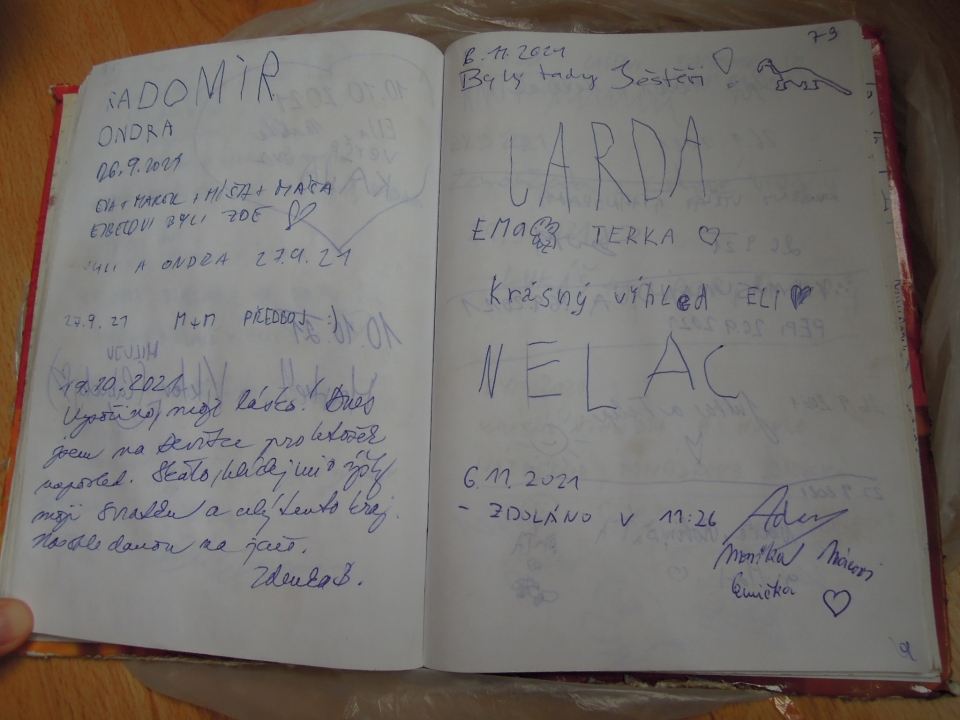 RADOMÍR
ONDRA
26.9.2021
EVA + MAREK + MÍŠA + MÁŤA
BYLI ZDE
A ONDRA 27.9.21
27.9.21 M+M PŘEDBOJ :)
19.10.2021
Vysočino, moje lásko! Dnes
jsem na Devítce pro letošek
naposled. Skálo, hlídej mi
moji a celý tento kraj.
Nashledanou na jaře.
Zdenka B.
79
6.11.2021
Byly tady Ještěři
JARDA
EMA TERKA
Krásný výhled ELI
NELA C
6.11.2021
- ZDOLÁNO V 11:26
Monika
Emička